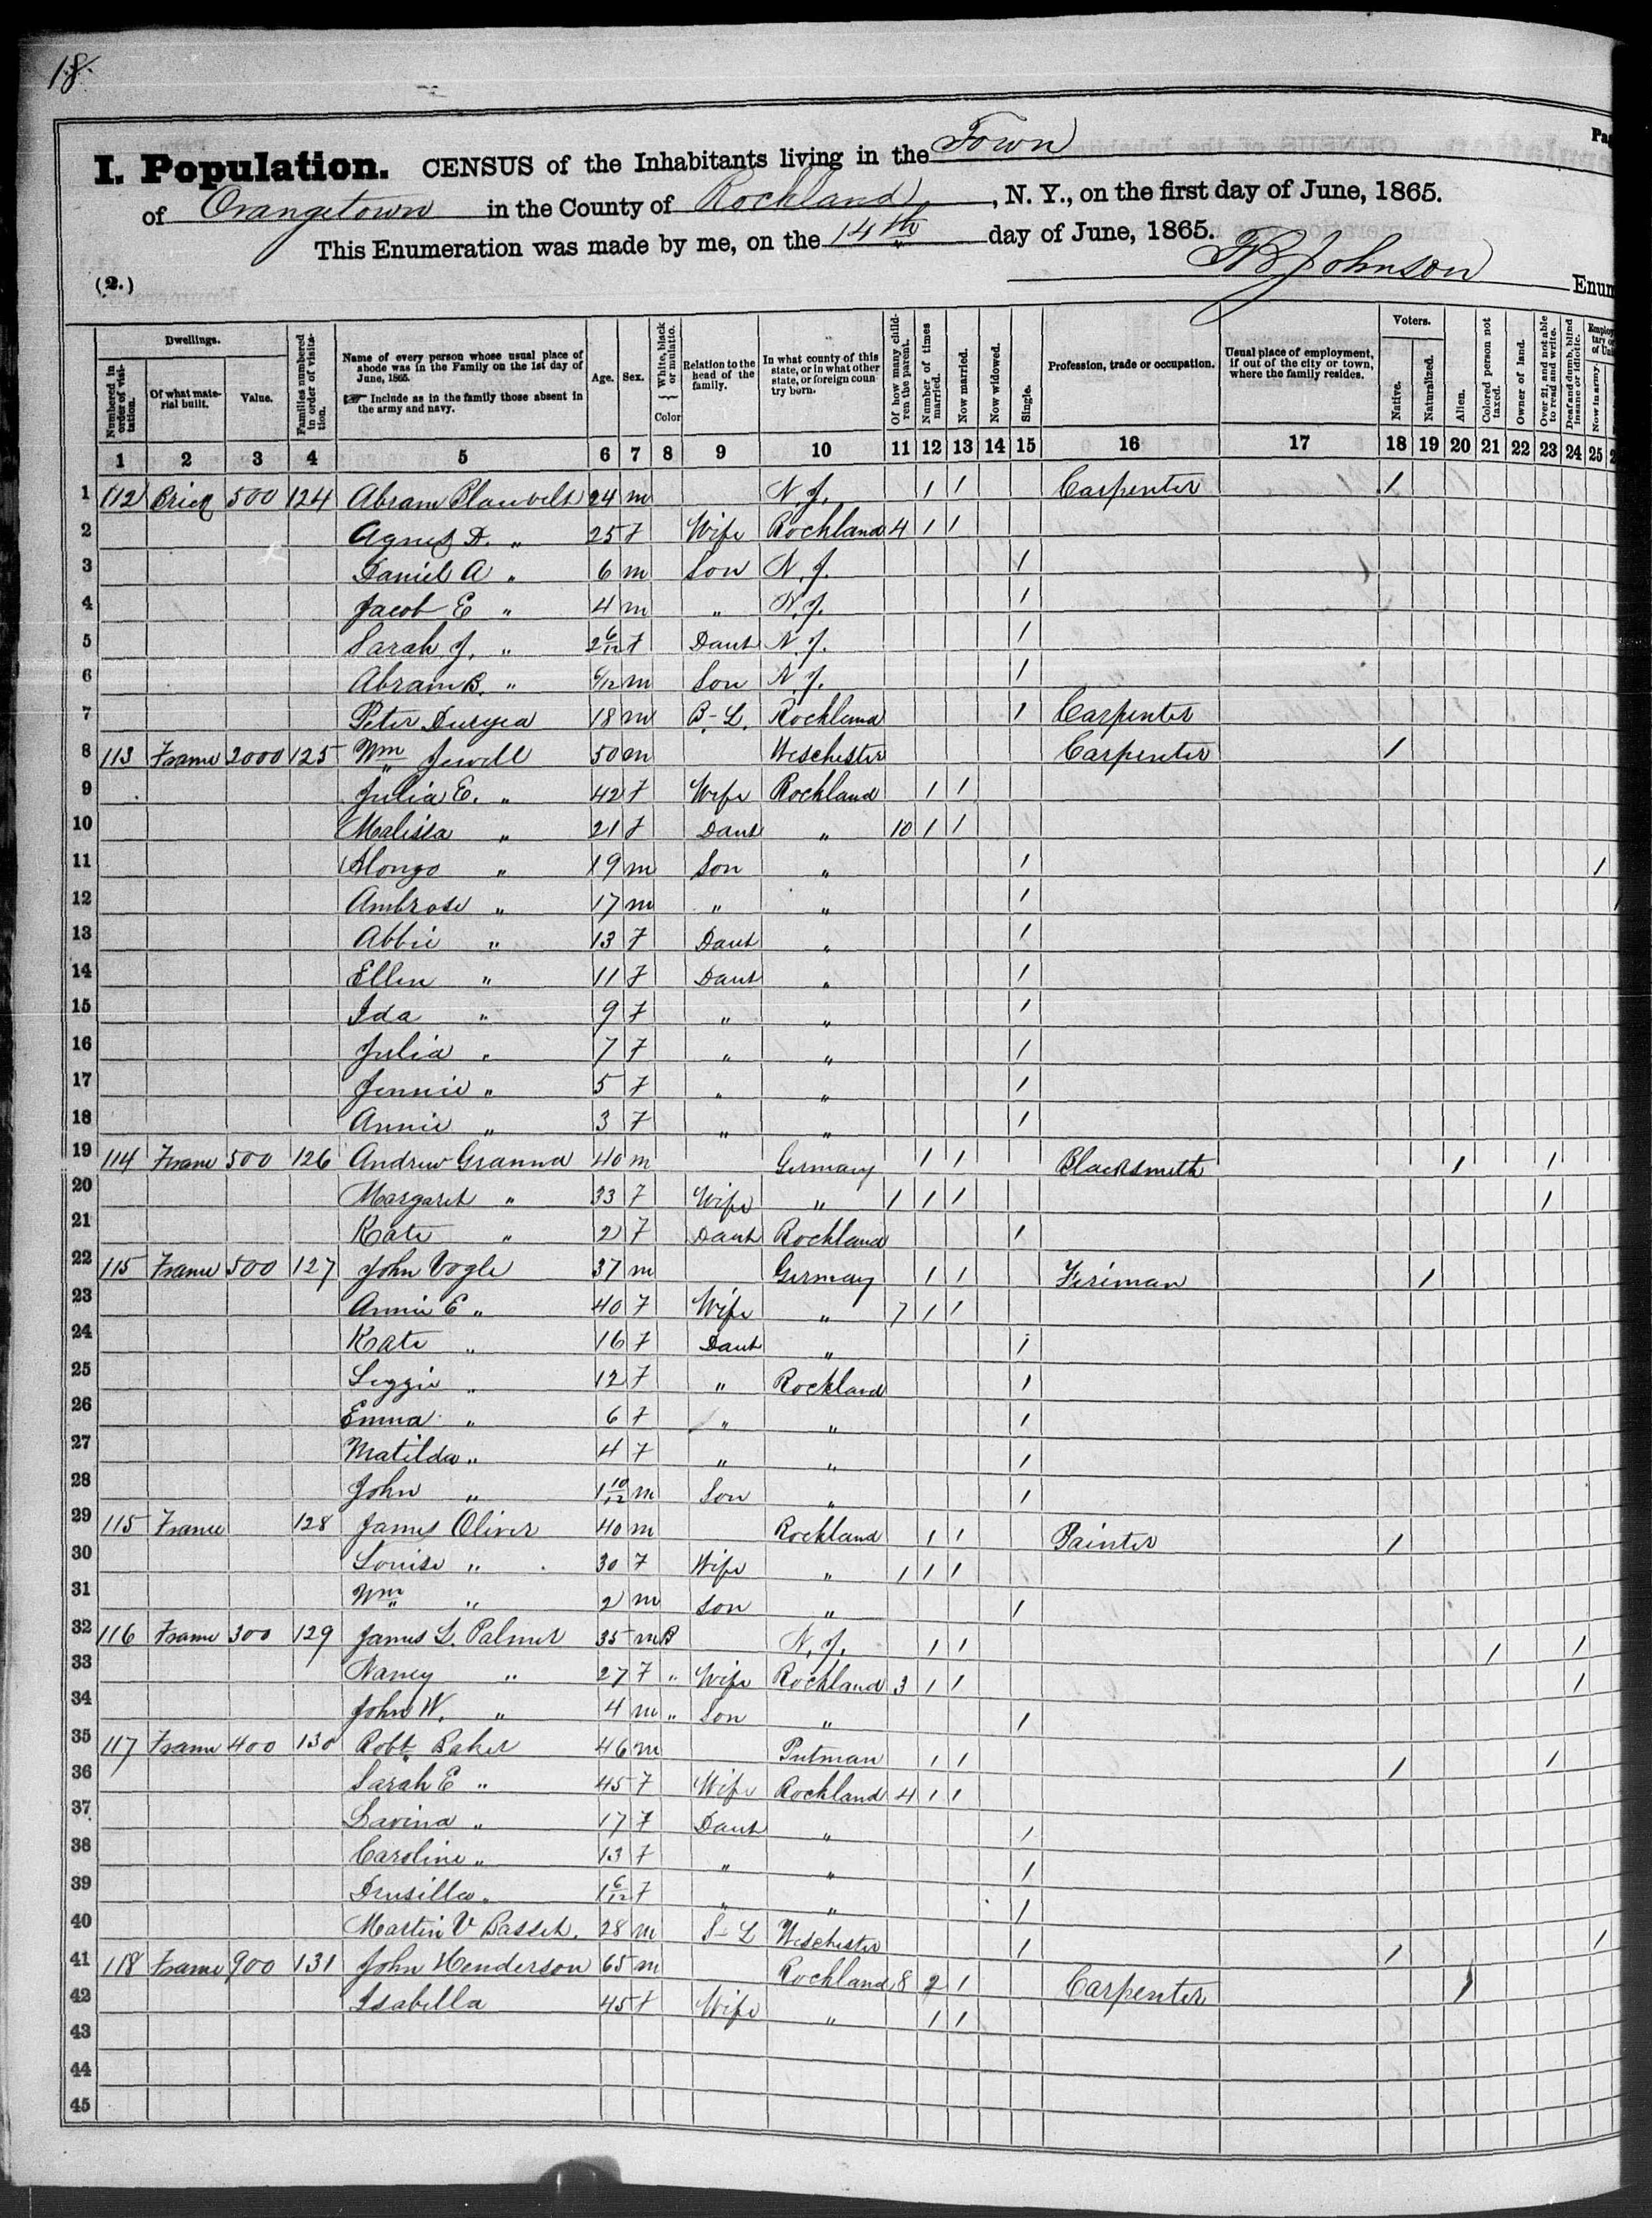 18.
Pa
I. Population. CENSUS of the Inhabitants living in the Town
of Orangetown in the County of Rockland, N. Y., on the first day of June, 1865.
This Enumeration was made by me, on the 14th day of June, 1865.
(2.) Johnson Enum
Dwellings. Voters. Employ
Numbered in order of visitation. Of what material built. Value. Families numbered in order of visitation. Name of every person whose usual place of abode was in the Family on the 1st day of June, 1865. Include as in the family those absent in the army and navy. Age. Sex. White, black or mulatto. Color Relation to the head of the family. In what county of this state, or in what other state, or foreign country born. Of how many children the parent. Number of times married. Now married. Now widowed. Single. Profession, trade or occupation. Usual place of employment, if out of the city or town, where the family resides. Native. Naturalized. Alien. Colored person not taxed. Owner of land. Over 21, and not able to read and write. Deaf and dumb, blind insane or idiotic. Now in army.
1 2 3 4 5 6 7 8 9 10 11 12 13 14 15 16 17 18 19 20 21 22 23 24 25 2
1 112 Brick 500 124 Abram Blauvelt 24 m N. J. 1 1 Carpenter 1
2 Agnes D. " 25 F Wife Rockland 4 1 1
3 Daniel A " 6 m Son N. J. 1
4 Jacob E " 4 m " N. J. 1
5 Sarah J. " 2 6/12 F Daut N. J. 1
6 Abram B. " 6/12 m Son N. J. 1
7 Peter Duryea 18 m B-L. Rockland 1 Carpenter
8 113 Frame 2000 125 Wm Jewell 50 m Weschester Carpenter 1
9 Julia E. " 42 F Wife Rockland 1 1
10 Malissa " 21 F Daut " 10 1 1
11 Alonzo " 19 m Son " 1 1
12 Ambrose " 17 m " " 1
13 Abbie " 13 F Daut " 1
14 Ellen " 11 F Daut " 1
15 Ida " 9 F " " 1
16 Julia " 7 F " " 1
17 Jennie " 5 F " " 1
18 Annie " 3 F " " 1
19 114 Frame 500 126 Andrew Granna 40 m Germany 1 1 Blacksmith 1 1
20 Margaret " 33 F Wife " 1 1 1 1
21 Kate " 2 F Daut Rockland 1
22 115 Frame 500 127 John Vogle 37 m Germay 1 1 Fireman 1
23 Annie E " 40 F Wife " 7 1 1
24 Kate " 16 F Daut " 1
25 Lizzie " 12 F " Rockland 1
26 Emma " 6 F " " 1
27 Matilda " 4 F " " 1
28 John " 1 10/12 m Son " 1
29 115 Frame 128 James Oliver 40 m Rockland 1 1 Painter 1
30 Louise " 30 F Wife " 1 1 1
31 Wm " 2 m Son " 1
32 116 Frame 300 129 James L. Palmer 35 m B N. J. 1 1 1 1
33 Nancy " 27 F " Wife Rockland 3 1 1 1
34 John W. " 4 m " Son " 1
35 117 Frame 400 130 Robt Baker 46 m Putman 1 1 1 1
36 Sarah E " 45 F Wife Rockland 4 1 1
37 Lavina " 17 F Daut " 1
38 Caroline " 13 F " " 1
39 Drusilla " 1 6/12 F " " 1
40 Martin V Basset. 28 m S-L Weschester 1 1 1
41 118 Frame 900 131 John Henderson 65 m Rockland 8 2 1 Carpenter 1
42 Isabella 45 F Wife " 1 1
43
44
45